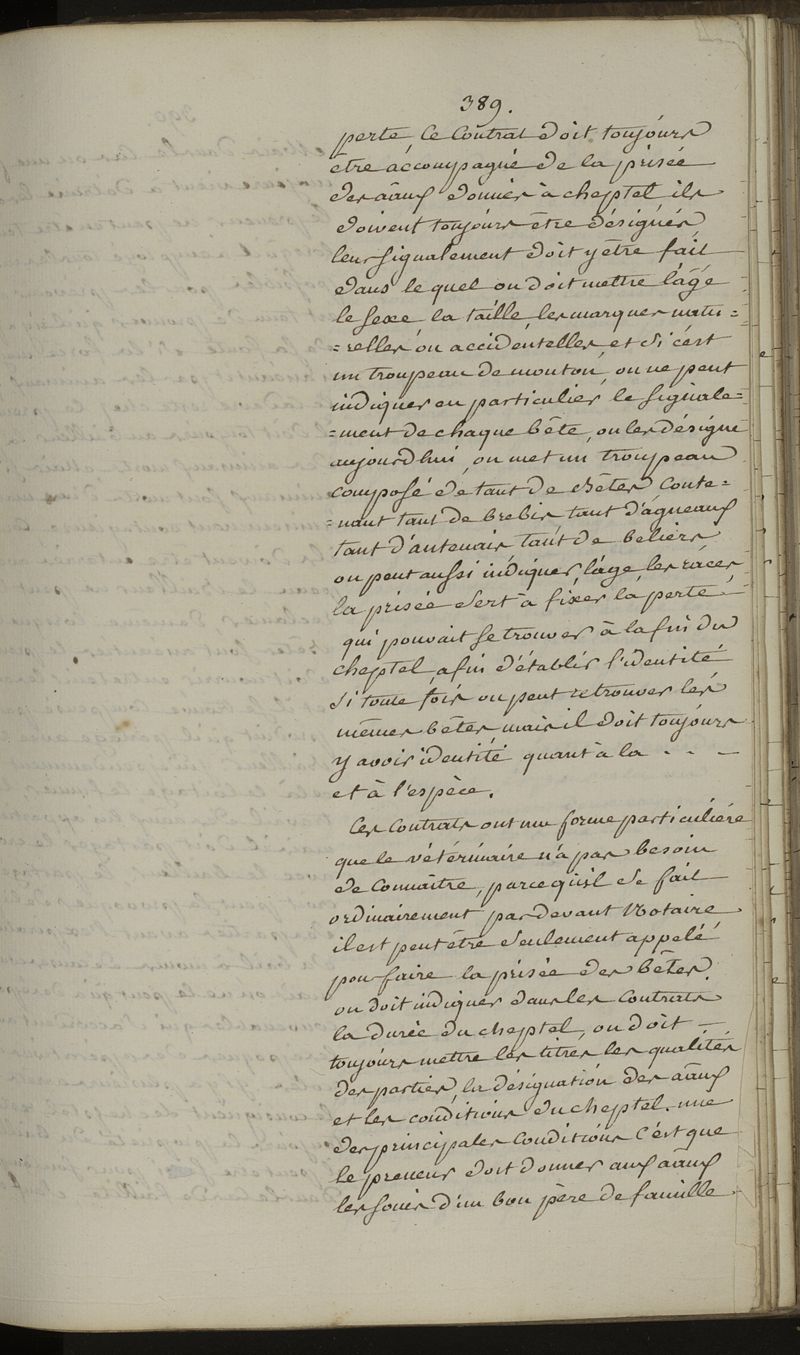 389.
perte Ce Contrat doit toujours
être accompagné de la prisée
des aãux donnés à cheptel ils
doivent toujours être désignés
leur signalement doit y être fait
dans le quel on doit mettre l'âge
le sexe la taille, les marques natu=
=relles ou accidentelles et si c'est
un troupeau de mouton, on ne peut
indiquer en particulier le signale=
=ment de chaque bête, on les désigne
aujourd'hui, on met un troupeau
composé de tant de bêtes, conte=
=nant tant de brebis tant d'agneaux
tant d'antenais tant de beliers
on peut aussi indiquer l'age les races
la prisée sert à fixer la perte
qui pouvait se trouver à la fin du
cheptel afin d'établir l'identité
si toute fois on peut retrouver les
mêmes bêtes, mais il doit toujours
y avoir identité quant à la - - -
et à l'espèce.
Ces contrats ont une forme particulière
que le vétérinaire n'a pas besoin
de connaître, parcequ'il se fait
ordinairement par devant Notaire
il est peut être seulement appelé
pour faire la prisée des bêtes.
on doit indiquer dans les contrats
la durée du cheptel, on doit —
toujours mettre les titres les qualités
des parties, la désignation des aãux
et les conditions du cheptel. une
des principales conditions c'est que
le preneur doit donner aux aãux
les soins d'un bon père de famille